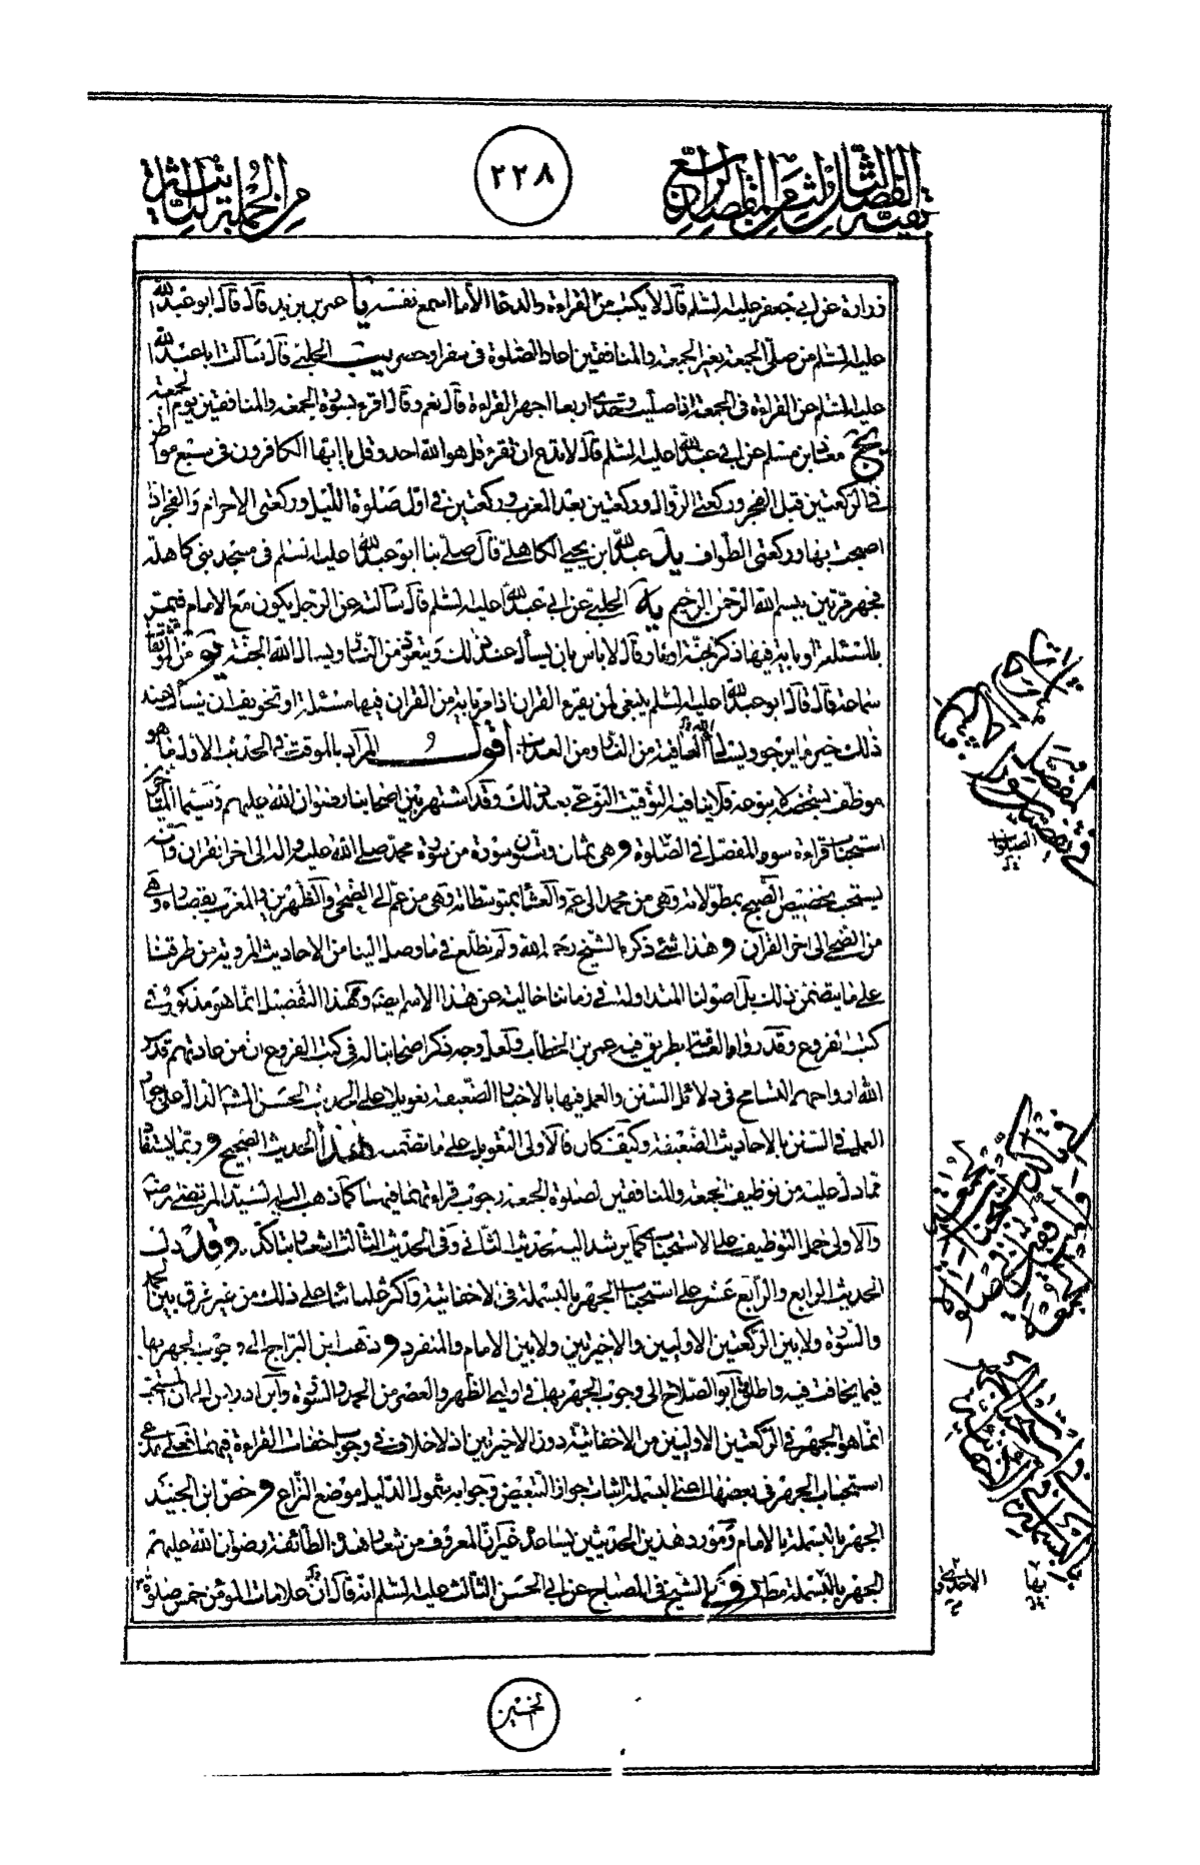 من الجملة الثانية
٢٢٨
بقية الفصل الثالث من المقصد الرابع
زرارة عن ابي جعفر عليه السلم قال لا يكتب من القراءة والدعاء الا ما اسمع نفسه يا عمر بن يزيد قال قال ابو عبدالله
عليه السلم من صلى الجمعة بغير الجمعة والمنافقين اعاد الصلوة في سفر او حضر يب الحلبي قال سالت ابا عبدالله
عليه السلم عن القراءة في الجمعة اذا صليت وحدي اربعا اجهر بالقراءة قال نعم وقال اقرء بسورة الجمعة والمنافقين يوم الجمعة
يج معاذ بن مسلم عن ابي عبدالله عليه السلم قال لا تدع ان تقرء قل هو الله احد وقل يا ايها الكافرون في سبع مواطن
في الركعتين قبل الفجر وركعتي الزوال وركعتين بعد المغرب وركعتين في اول صلوة الليل وركعتي الاحرام والفجر اذا
اصبحت بها وركعتي الطواف يد عبدالله ابن يحيى الكاهلي قال صلى بنا ابو عبدالله عليه السلم في مسجد بني كاهل
فجهر مرتين ببسم الله الرحمن الرحيم يه الحلبي عن ابي عبدالله عليه السلم قال سالته عن الرجل يكون مع الامام فيمر
بالمسئلة او باية فيها ذكر جنة او نار قال لا باس بان يسأل عند ذلك ويتعوذ من النار ويسال الله الجنة يو من الموثقات
سماعة قال قال ابو عبدالله عليه السلم ينبغي لمن يقرء القران اذا مر باية من القران فيها مسئلة او تخويف ان يسأل عند
ذلك خير ما يرجو ويسأل الله العافية من النار ومن العذاب اقول المراد بالموقت في الحديث الاول ما هو
موظف بشخصه لا بنوعه فلا ينافيه التوقيت النوعي بعد ذلك وقد اشتهر بين اصحابنا رضوان الله عليهم وسيما المتاخرين
استحباب قراءة سور المفصل في الصلوة وهي ثمان وستون سورة من سورة محمد صلى الله عليه واله الى اخر القران وانه
يستحب تخصيص الصبح بمطولاته وهي من محمد الى عم والعشاء بمتوسطاته وهي من عم الى الضحى والظهرين والمغرب بقصاره وهي
من الضحى الى اخر القران وهذا شئ ذكره الشيخ رحمه الله ولم نطلع في ما وصل الينا من الاحاديث المروية من طرقنا
على ما يتضمن ذلك بل اصولنا المتداولة في زماننا خالية عن هذا الاسم ايضا وهذا التفصيل انما هو مذكور في
كتب الفروع وقد رواه العامة بطريق فيه عمر بن الخطاب ولعل وجه ذكر اصحابنا له في كتب الفروع ان من عادتهم قدس
الله ارواحهم التسامح في دلائل السنن والعمل فيها بالاخبار الضعيفة تعويلا على الحديث الحسن المشهور الدال على جواز
العمل في السنن بالاحاديث الضعيفة وكيف كان فالاولى التعويل على ما تضمنه هذا الحديث الصحيح وربما يستفاد
مما دل عليه من توظيف الجمعة والمنافقين لصلوة الجمعة وجوب قراءتهما فيها كما ذهب اليه السيد المرتضى رضه
والاولى حمل التوظيف على الاستحباب كما يرشد اليه الحديث الثاني وفي الحديث الثالث اشعار بتاكده وقد دل
الحديث الرابع والرابع عشر على استحباب الجهر بالبسملة في الاخفاتية واكثر علمائنا على ذلك من غير فرق بين الحمد
والسورة ولا بين الركعتين الاوليين والاخيرتين ولا بين الامام والمنفرد وذهب ابن البراج الى وجوب الجهر بها
فيما يخافت فيه واطلق ابو الصلاح الى وجوب الجهر بها في اوليى الظهر والعصر من الحمد والسورة وابن ادريس الى ان المستحب
انما هو الجهر في الركعتين الاوليين من الاخفاتية دون الاخيرتين اذ لا خلاف في وجوب اخفات القراءة فيهما فعلى مدعي
استحباب الجهر في بعضها اعني البسملة اثبات جواز التبعيض وجوابه شمول الدليل موضع النزاع وخص ابن الجنيد
الجهر بالبسملة بالامام ومورد هذين الحديثين يساعده غير ان المعروف من شعار هذه الطائفة رضوان الله عليهم
الجهر بالبسملة مطلقا وروى الشيخ في المصباح عن ابي الحسن الثالث عليه السلم انه قال ان علامات المؤمن خمس صلوة
الخمسين